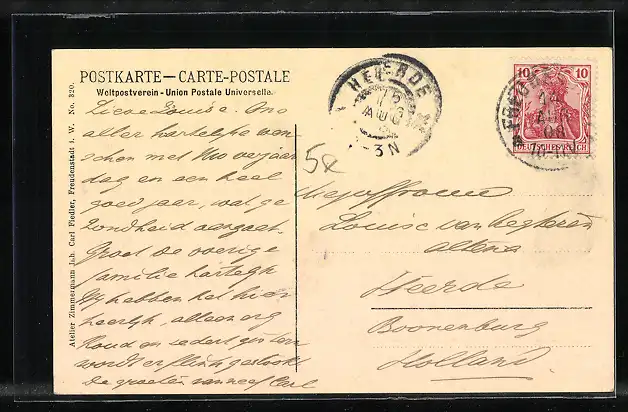 POSTKARTE—CARTE-POSTALE
Weltpostverein - Union Postale Universelle.
Lieve Louise. Ons
aller hartelijke wen
schen met Uw verjaar
dag en een heel
goed jaar, wat ge
zondheid aangaat.
Groet de overige
familie hartelijk
Wij hebben het hier
heerlijk, alleen erg
koud en
wordt er flink gestookt
De groeten van neef Carl
Atelier Zimmermann Inh. Carl Fiedler, Freudenstadt i. W. No. 320.
HEERDE
15
AUG
-3N
10 10
DEUTSCHES REICH
FREUDE
08
5x
Mejuffrouw
Louise van
Altena
Heerde
Boonenburg
Holland